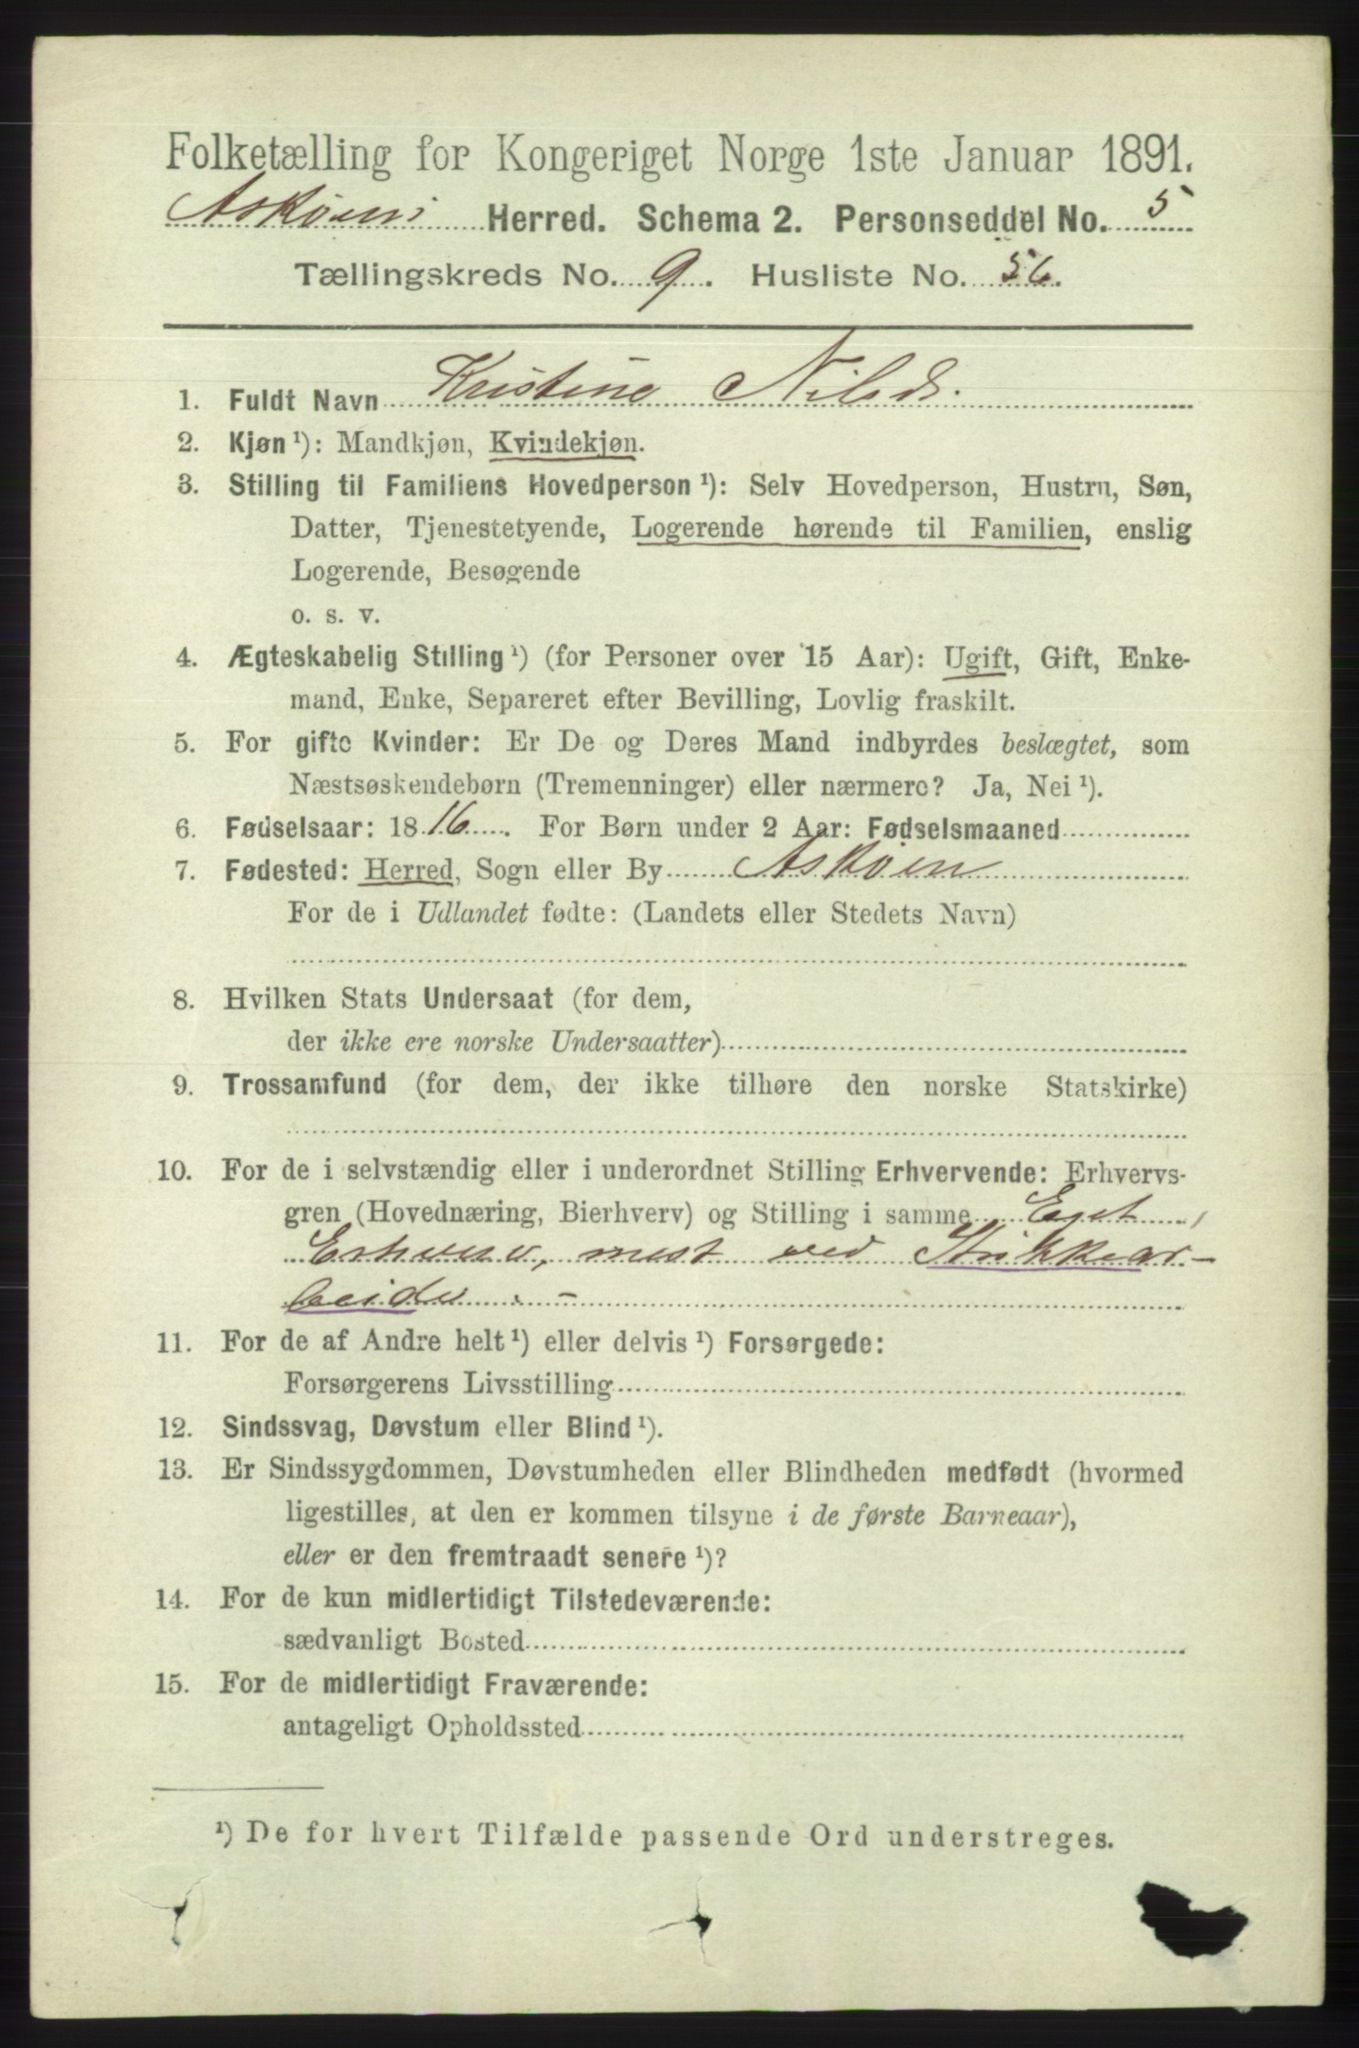 Folketælling for Kongeriget Norge 1ste Januar 1891.
Askøens Herred. Schema 2. Personseddel No. 5
Tællingskreds No. 9. Husliste No. 56.
1. Fuldt Navn Kristine Nilsd.
2. Kjøn ¹): Mandkjøn, Kvindekjøn.
3. Stilling til Familiens Hovedperson ¹): Selv Hovedperson, Hustru, Søn,
Datter, Tjenestetyende, Logerende hørende til Familien, enslig
Logerende, Besøgende
o. s. v.
4. Ægteskabelig Stilling ¹) (for Personer over 15 Aar): Ugift, Gift, Enke-
mand, Enke, Separeret efter Bevilling, Lovlig fraskilt.
5. For gifte Kvinder: Er De og Deres Mand indbyrdes beslægtet, som
Næstsøskendebørn (Tremenninger) eller nærmere? Ja, Nei ¹).
6. Fødselsaar: 1816. For Børn under 2 Aar: Fødselsmaaned
7. Fødested: Herred, Sogn eller By Askøen
For de i Udlandet fødte: (Landets eller Stedets Navn)
8. Hvilken Stats Undersaat (for dem,
der ikke ere norske Undersaatter)
9. Trossamfund (for dem, der ikke tilhøre den norske Statskirke)
10. For de i selvstændig eller i underordnet Stilling Erhvervende: Erhvervs-
gren (Hovednæring, Bierhverv) og Stilling i samme Eget
Erhverv, mest ved Strikkear-
beide. -
11. For de af Andre helt ¹) eller delvis ¹) Forsørgede:
Forsørgerens Livsstilling
12. Sindssvag, Døvstum eller Blind ¹).
13. Er Sindssygdommen, Døvstumheden eller Blindheden medfødt (hvormed
ligestilles, at den er kommen tilsyne i de første Barneaar),
eller er den fremtraadt senere ¹)?
14. For de kun midlertidigt Tilstedeværende:
sædvanligt Bosted
15. For de midlertidigt Fraværende:
antageligt Opholdssted
¹) De for hvert Tilfælde passende Ord understreges.